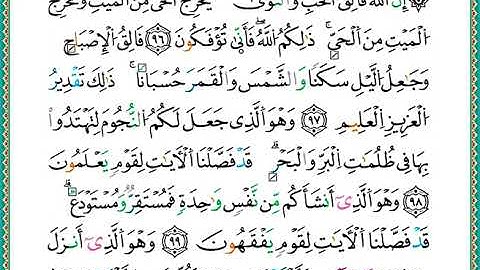 إِنَّ اللَّهَ فَالِقُ الْحَبِّ وَالنَّوَىٰ يُخْرِجُ الْحَيَّ مِنَ الْمَيْتِ وَمُخْرِجُ
الْمَيْتِ مِنَ الْحَيِّ ۚ ذَٰلِكُمُ اللَّهُ ۖ فَأَنَّىٰ تُؤْفَكُونَ ٩٦ فَالِقُ الْإِصْبَاحِ
وَجَاعِلُ اللَّيْلِ سَكَنًا وَالشَّمْسَ وَالْقَمَرَ حُسْبَانًا ۚ ذَٰلِكَ تَقْدِيرُ
الْعَزِيزِ الْعَلِيمِ ٩٧ وَهُوَ الَّذِي جَعَلَ لَكُمُ النُّجُومَ لِتَهْتَدُوا
بِهَا فِي ظُلُمَاتِ الْبَرِّ وَالْبَحْرِ ۗ قَدْ فَصَّلْنَا الْآيَاتِ لِقَوْمٍ يَعْلَمُونَ
٩٨ وَهُوَ الَّذِي أَنْشَأَكُمْ مِنْ نَفْسٍ وَاحِدَةٍ فَمُسْتَقِرٌّ وَمُسْتَوْدَعٌ ۗ
قَدْ فَصَّلْنَا الْآيَاتِ لِقَوْمٍ يَفْقَهُونَ ٩٩ وَهُوَ الَّذِي أَنْزَلَ